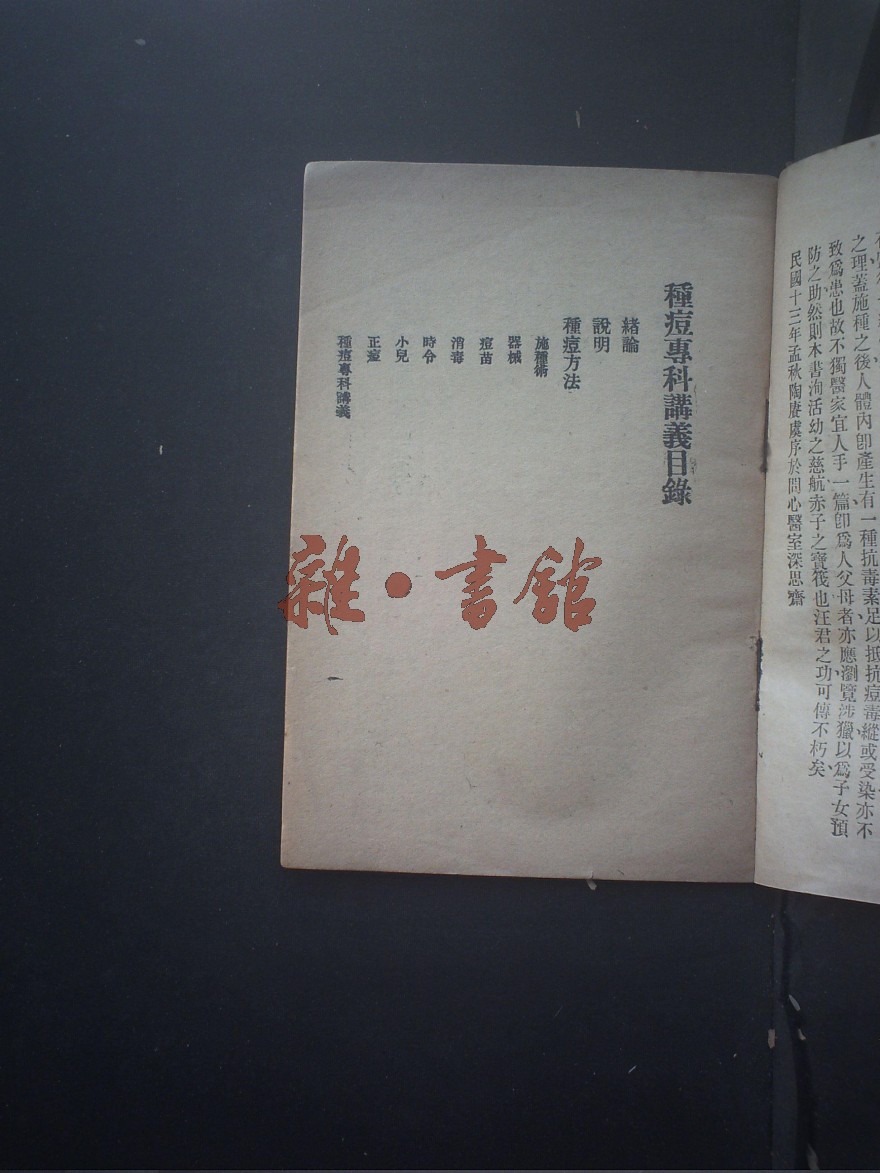 之理蓋施種之後人體內卽產生有一種抗毒素足以抵抗痘毒縱或受染亦不
致爲患也故不獨醫家宜人手一篇卽爲人父母者亦應瀏覽涉獵以爲子女預
防之助然則本書洵活幼之慈航赤子之寶筏也汪君之功可傳不朽矣
民國十三年孟秋陶賡虞序於問心醫室深思齋
種痘專科講義目錄
緒論
說明
種痘方法
施種術
器械
痘苗
消毒
時令
小兒
正痘
種痘專科講義
雜•書館